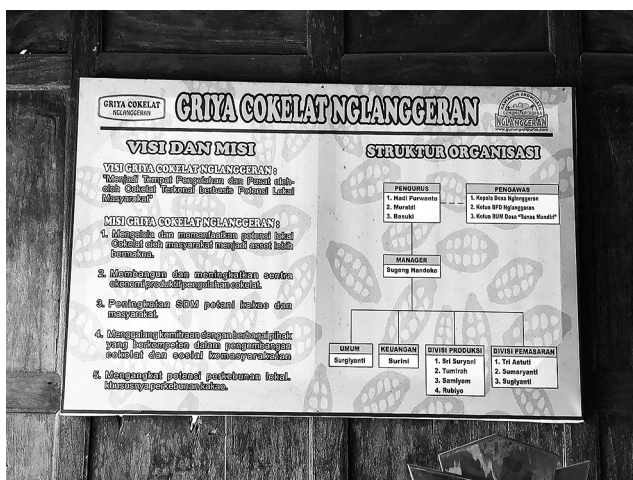 GRIYA COKELAT
NGLANGGERAN
GRIYA COKELAT NGLANGGERAN
NGLANGGERAN
VISI DAN MISI
VISI GRIYA COKELAT NGLANGGERAN :
"Menjadi Tempat Pengolahan dan Pusat oleh-
oleh Cokelat Terkenal berbasis Potensi Lokal
Masyarakat"
MISI GRIYA COKELAT NGLANGGERAN :
1. Mengelola dan memanfaatkan potensi lokal
Cokelat oleh masyarakat menjadi asset lebih
bermakna.
2. Membangun dan meningkatkan sentra
ekonomi produktif pengolahan cokelat.
3. Peningkatan SDM petani kakao dan
masyarakat.
4. Menggalang kemitraan dengan berbagai pihak
yang berkompeten dalam pengembangan
cokelat dan sosial kemasyarakatan
5. Mengangkat potensi perkebunan lokal.
khususnya perkebunan kakao.
STRUKTUR ORGANISASI
PENGURUS
1. Hadi Purwanto
2. Mursidi
3. Basuki
PENGAWAS
1. Kepala Desa Nglanggeran
2. Ketua BPD Nglanggeran
3. Ketua BUM Desa "Tunas Mandiri"
MANAGER
Sugeng Handoko
UMUM
Surgiyanti
KEUANGAN
Surini
DIVISI PRODUKSI
1. Sri Suryani
2. Tumirah
3. Samiyem
4. Rubiyo
DIVISI PEMASARAN
1. Tri Astuti
2. Sumaryanti
3. Sugiyanti